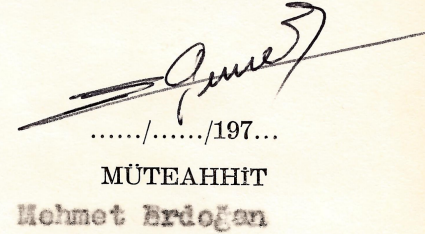 ....../....../197...
MÜTEAHHİT
Mehmet Erdoğan